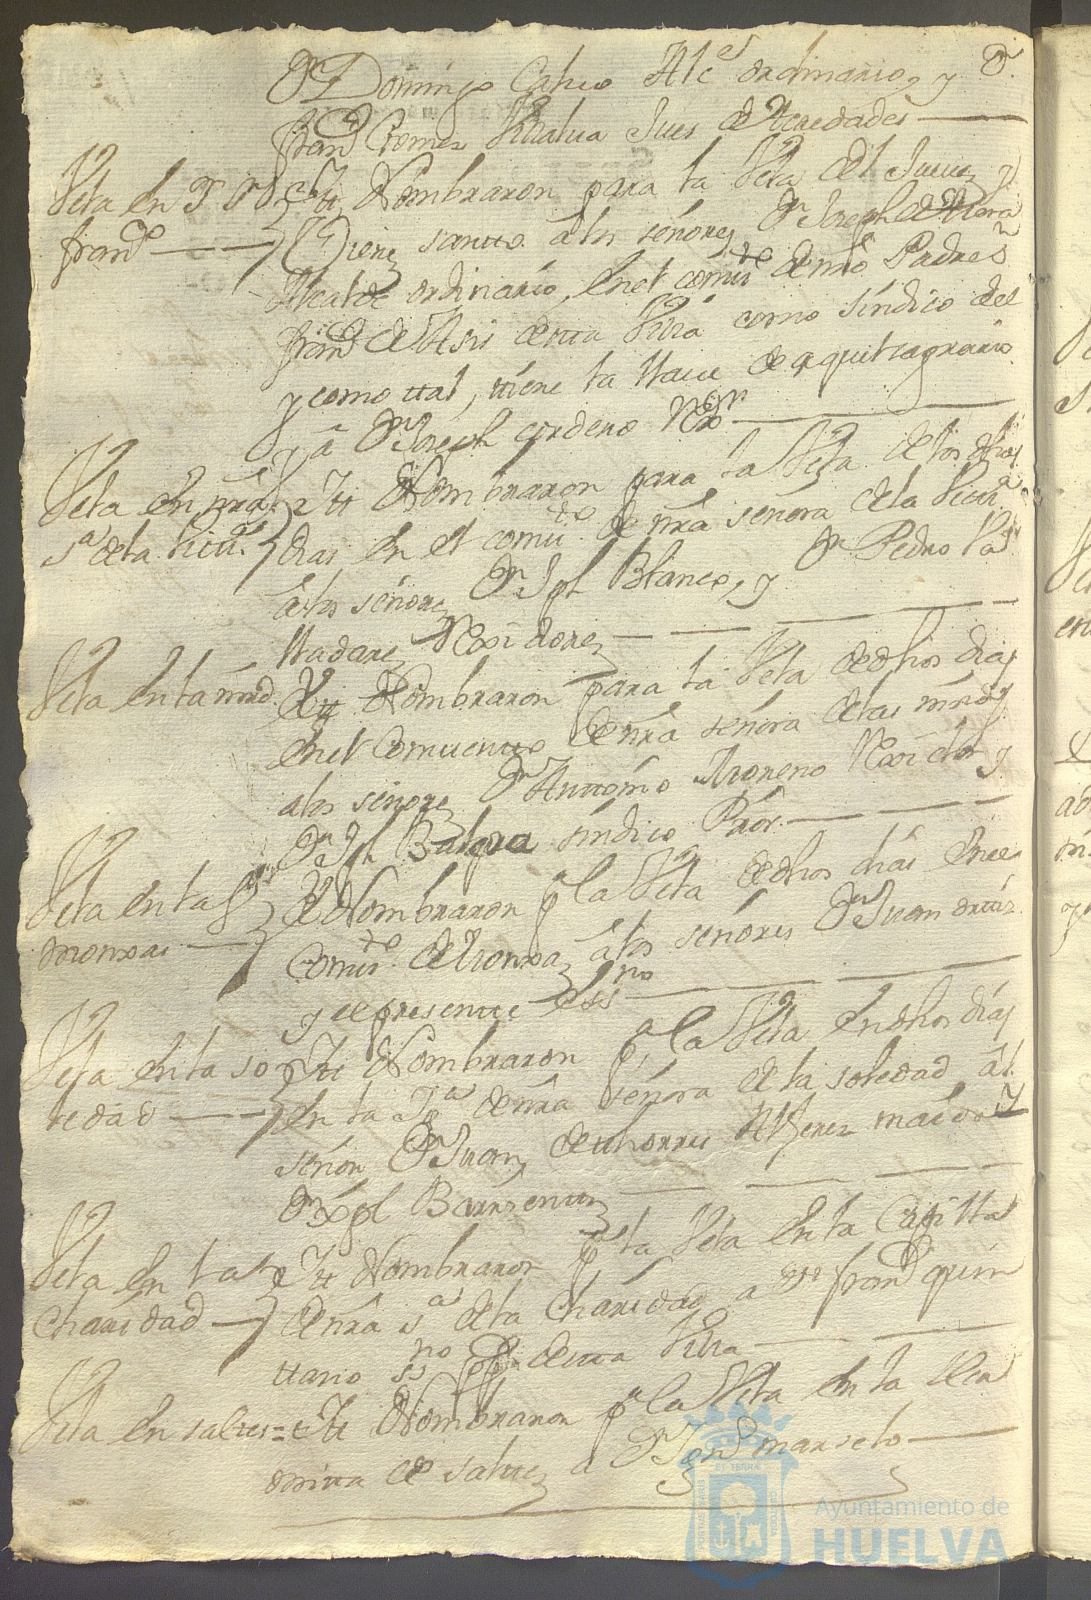 Dn Domingo Calvo Alce. ordinario, y Dn.
Franco Gomez Villalva Jues de heredades
Vela en Sn
Franco
Ytt. Nombraron para la Vela del Jueves y
Viernes santto. a los señores Dn Joseph de
Alcalde ordinario, en el comvto de nro Padre Sn
Franco de Asis de esta Villa como síndico del
y como ttal, ttiene la llave de aquel sagrario
y â Dn Joseph cordero Rexor
Vela en nrâ
sa de la Victa.
Ytt Nombraron para la Vela de los dhos
dias, en el comvto. de nrâ señora de la Victa
â los señores Dn Jph Blanco, y Dn Pedro Va
lladares Rexidores
Vela en la mrd.
Ytt Nombraron para la Vela de dhos dias
en el Comventto de nrâ señora de las mrds
a los señores Dn Anttonio Moreno Rexidor y
Dn Jph síndico Pror.
Vela en las
monxas
Ytt Nombraron pa la Vela de dhos dias en el
Comvto de monxas â los señores Dn Juan ortiz
y el presentte Essno
Vela en la so
ledad
Ytt Nombraron pa la Vela en dhos dias
en la Iga de nrâ señora de la soledad âl
señor Dn Juan de thorres Alferez maior y
Dn Xpl Barrientos
Vela en la
Charidad
Ytt Nombraron pa la Vela en la Capilla
de nrâ sa de la Charidad a Dn Franco quin
ttario ssno ppco de estta Villa
Vela en saltes =
Ytt Nombraron pa la Vela en la Her
mitta de saltes a Dn marselo
Ayuntamiento de
HUELVA